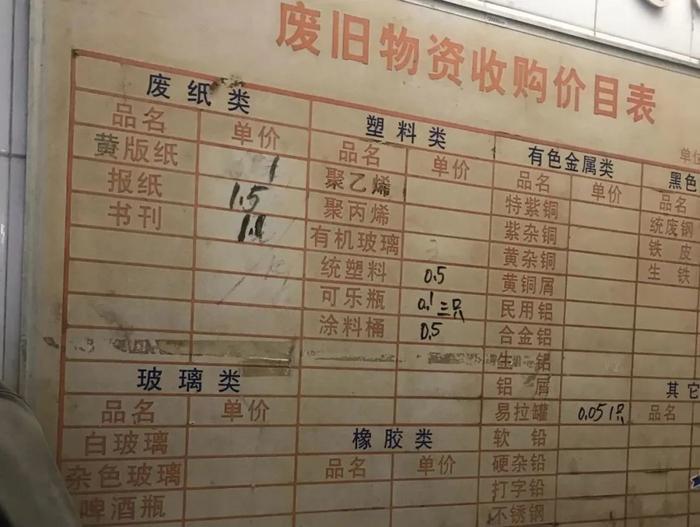 废旧物资收购价目表
单位
废纸类
品名 单价
黄版纸 1
报纸 1.5
书刊 1.1
玻璃类
品名 单价
白玻璃
杂色玻璃
啤酒瓶
塑料类
品名 单价
聚乙烯
聚丙烯
有机玻璃
统塑料 0.5
可乐瓶 0.1三只
涂料桶 0.5
橡胶类
品名 单价
有色金属类
品名 单价
特紫铜
紫杂铜
黄杂铜
黄铜屑
民用铝
合金铝
生铝
铝屑
易拉罐 0.05 1只
软铅
硬杂铅
打字铅
不锈钢
黑色
品名
统废钢
铁皮
生铁
其它
品名